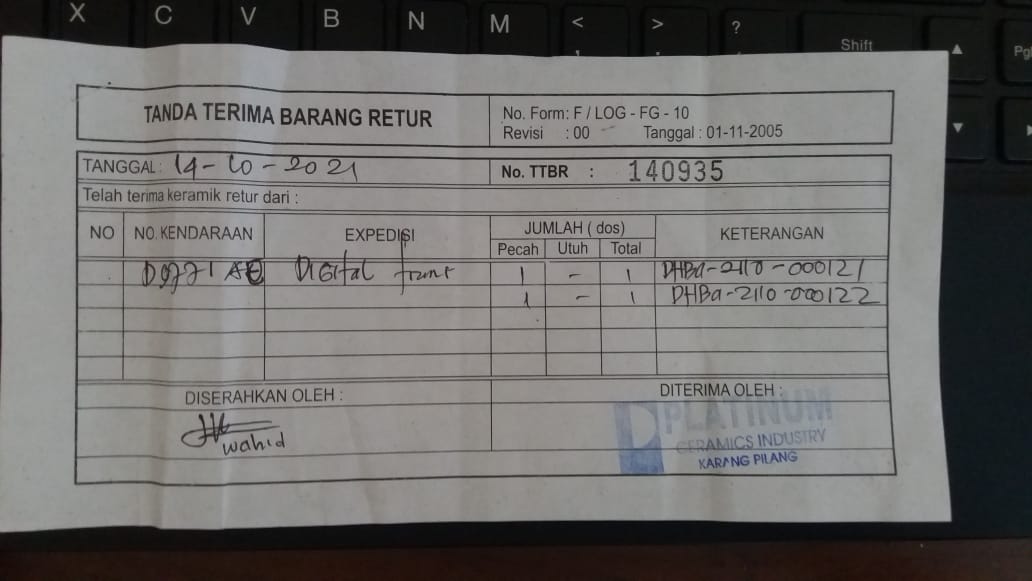 X C V B N M < > ?
, . Shift
Pg
TANDA TERIMA BARANG RETUR
No. Form: F / LOG - FG - 10
Revisi : 00 Tanggal : 01-11-2005
TANGGAL : 14-10-2021
No. TTBR : 140935
Telah terima keramik retur dari :
NO NO. KENDARAAN EXPEDISI JUMLAH ( dos) KETERANGAN
Pecah Utuh Total
Digital 1 - 1 DHBa-2110-000121
1 - 1 DHBa-2110-000122
DISERAHKAN OLEH :
DITERIMA OLEH :
wahid
PLATINUM
CERAMICS INDUSTRY
KARANG PILANG